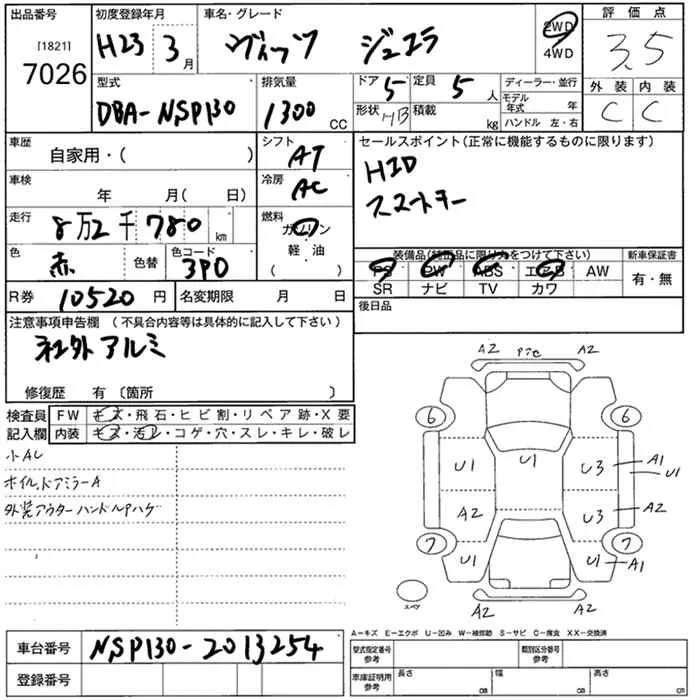 出品番号 初度登録年月 車名・グレード 評価点
[1821] 7026 H23 3月 ヴィッツ ジュエラ 2WD 4WD 3.5
外装 内装
C C
型式 排気量 ドア 5 定員 5 人 ディーラー・並行
DBA-NSP130 1300 CC 形状 HB 積載 kg モデル年式 年
ハンドル 左・右
車歴 自家用・( ) シフト AT セールスポイント(正常に機能するものに限ります)
車検 年 月( 日) 冷房 AC HID
スマートキー
走行 8万2千780 km 燃料 ガソリン
軽油
( )
色 赤 色替 色コード 3P0 装備品(純正品に限り丸をつけて下さい) 新車保証書
PS PW ABS エアB AW 有・無
SR ナビ TV カワ
R券 10520 円 名変期限 月 日 後日品
注意事項申告欄 (不具合内容等は具体的に記入して下さい)
社外アルミ
修復歴 有〔箇所 〕
検査員 FW キズ・飛石・ヒビ割・リペア跡・X要
記入欄 内装 キズ・汚レ・コゲ・穴・スレ・キレ・破レ
小AU
外装アウターハンドルPハゲ
A2 A2
6 6
U1 U1 U3 A1 U1
A2 U3 A2
7 7
U1 U1 A1
スペア A2 A2
A-キズ E-エクボ U-凹み W-補修跡 S-サビ C-腐食 XX-交換済
車台番号 NSP130-2013254 型式指定番号 参考 類別区分番号 参考
登録番号 車庫証明用 参考 長さ cm 幅 cm 高さ cm